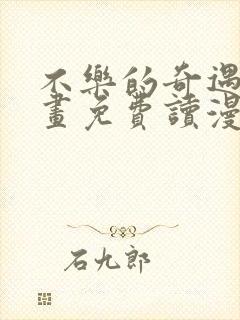 不樂的奇遇
畫免費讀漫
石九郎